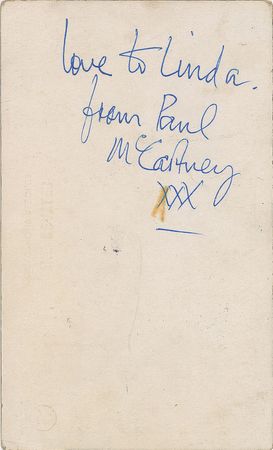 love to Linda.
from Paul
McCartney
XXX